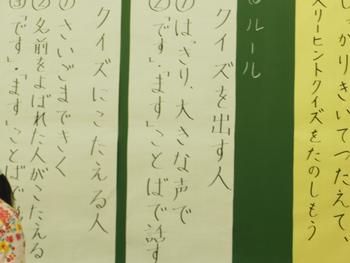 しっかりきいてつたえて、
スリーヒントクイズをたのしもう
ルール
クイズを出す人
①はっきり、大きな声で
②「です」「ます」ことばで話す
クイズにこたえる人
①さいごまできく
②名前をよばれた人がこたえる
③「です」「ます」ことばで